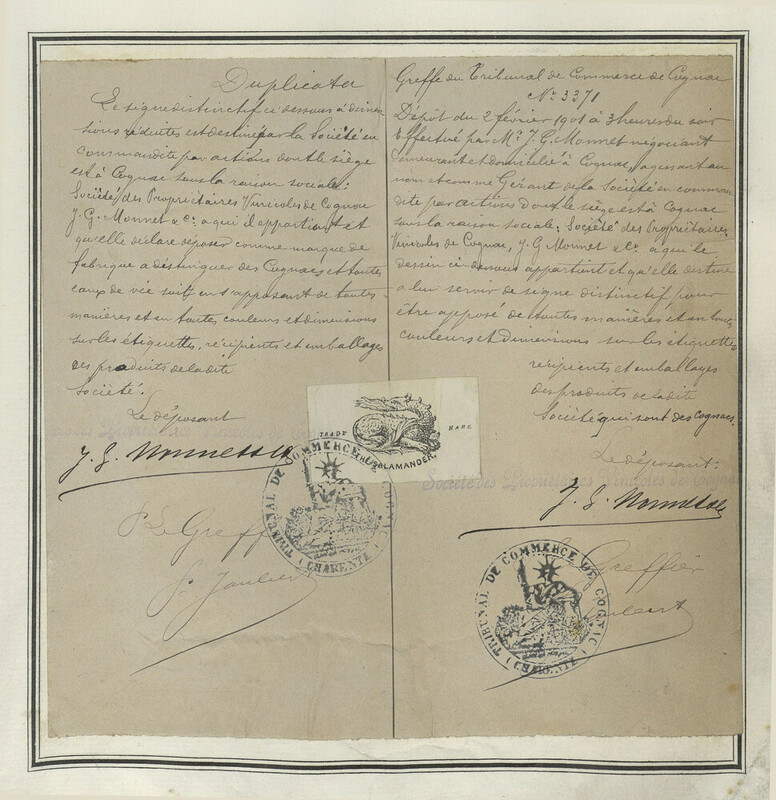 Duplicata
Le signe distinctif ci dessous à dimen-
sions réduites est destiné par la Société en
commandite par actions dont le siège
est à Cognac sous la raison sociale:
Société des Propriétaires Vinicoles de Cognac
J. G. Monnet & Co. à qui il appartient et
qu'elle déclare déposer comme marque de
fabrique à distinguer des Cognacs et toutes
eaux de vie soit en s'apposant de toutes
manières et en toutes couleurs et dimensions
sur les étiquettes, récipients et emballages
des produits de la dite
Société.
Le déposant
J. G. Monnet & Co
Le Greffier
Greffe du Tribunal de Commerce de Cognac
No 3371
Dépôt du 2 février 1901 à 3 heures du soir
Effectué par Mr J. G. Monnet négociant
demeurant et domicilié à Cognac, agissant au
nom et comme Gérant de la Société en comman
dite par actions dont le siège est à Cognac
sous la raison sociale: Société des Propriétaires
Vinicoles de Cognac, J. G. Monnet & Co. à qui le
dessin ci-dessous appartient et qu'elle destine
à lui servir de signe distinctif pour
être apposé de toutes manières et en toutes
couleurs et dimensions sur les étiquettes
récipients et emballages
des produits de la dite
Société qui sont des Cognacs.
Le déposant:
Société des Propriétaires Vinicoles de Cognac
J. G. Monnet & Co
Le Greffier
TRADE MARK
THE SALAMANDER
TRIBUNAL DE COMMERCE DE COGNAC
(CHARENTE)
TRIBUNAL DE COMMERCE DE COGNAC